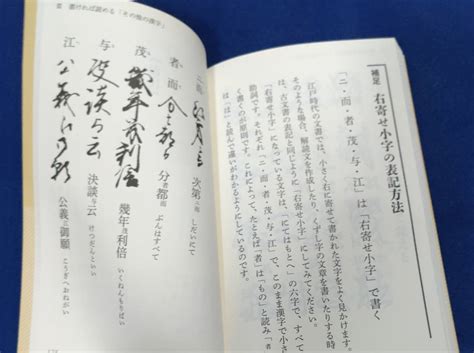 補足 右寄せ小字の表記方法
「ニ・而・者・茂・与・江」は「右寄せ小字」で書く
江戸時代の文書では、小さく右に寄せて書かれた文字をよく見かけます。
そのような場合、解読文を作成したり、くずし字の文章を書いたりする時
は、古文書の表記と同じように「右寄せ小字」にしてみてください。
「右寄せ小字」になっている文字は、「にてはもとへ」の六字で、すべて
助詞です。それぞれ「ニ・而・者・茂・与・江」で、このまま漢字で小さ
く書くのが原則です。これによって、たとえば「者」は「もの」と読み「者
は「は」と読んで違いがわかるようにしているのです。
書ければ読める「その他の漢字」
次第 しだいにて
者 而 分者都而 ぶんはすべて
茂 幾年茂利倍 いくねんもりばい
与 決談与云 けつだんといい
江 公義江御願 こうぎへおねがい